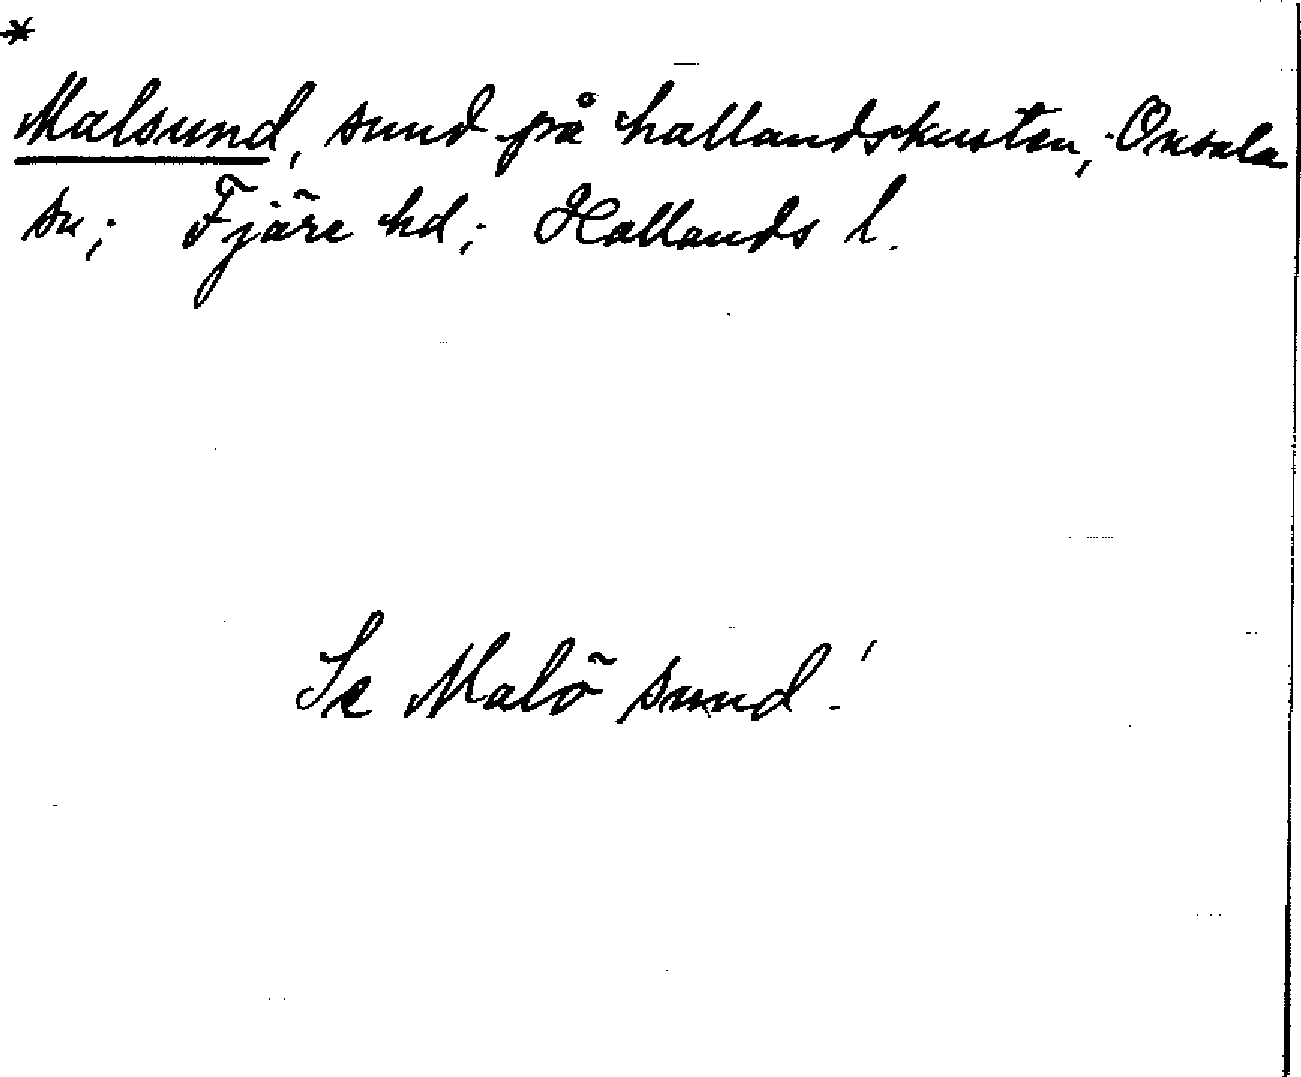 *
Malsund, sund på hallandskusten, Onsala
sn; Fjäre hd; Hallands l.
Se Malö sund!